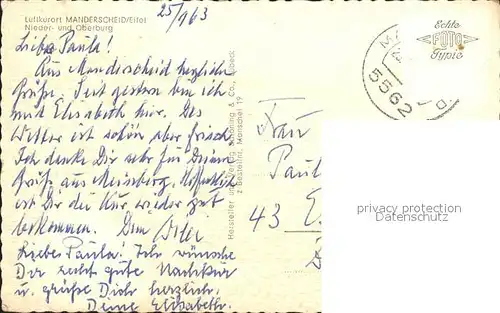 25/1963
Luftkurort MANDERSCHEID/Eifel
Nieder- und Oberburg
Liebe Paula!
Aus Manderscheid herzliche
Grüße. Seit gestern bin ich
mit Elisabeth hier. Das
Wetter ist schön aber frisch
Ich danke Dir sehr für Deinen
Gruß aus Meinberg. Hoffentlich
ist Dir die Kur wieder gut
bekommen. Dein
Liebe Paula! Ich wünsche
Dir recht gute Nachkur
u. grüße Dich herzlich.
Deine Elisabeth.
Hersteller Verlag Schöning & Co
Echte
FOTO
Typie
5562
Frau
Paul
43 E
privacy protection
Datenschutz